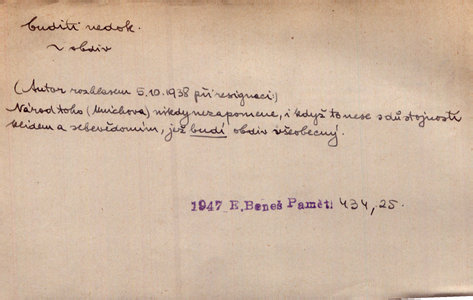 buditi nedok.
~ obdiv
(Autor rozhlasem 5.10.1938 při resignaci:)
Národ toho (Mnichova) nikdy nezapomene, i když to nese s důstojností
klidem a sebevědomím, jež budí obdiv všeobecný.
1947 E.Beneš Pamět. 434,25.